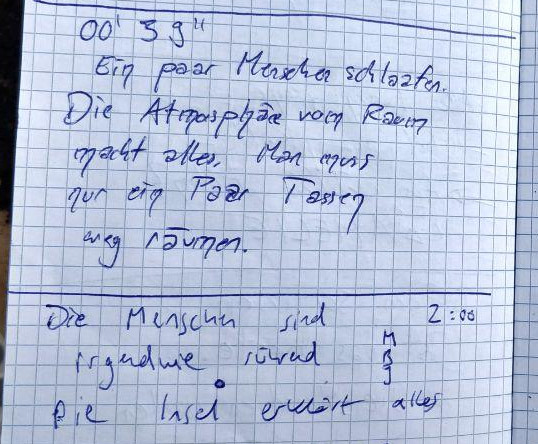 00' 39"
Ein paar Menschen schlaafen.
Die Atmosphäre vom Raum
macht alles. Man muss
nur ein Paar Tassen
weg räumen.
Die Menschen sind 2:00
irgendwie rührend
Die Insel erklärt alles